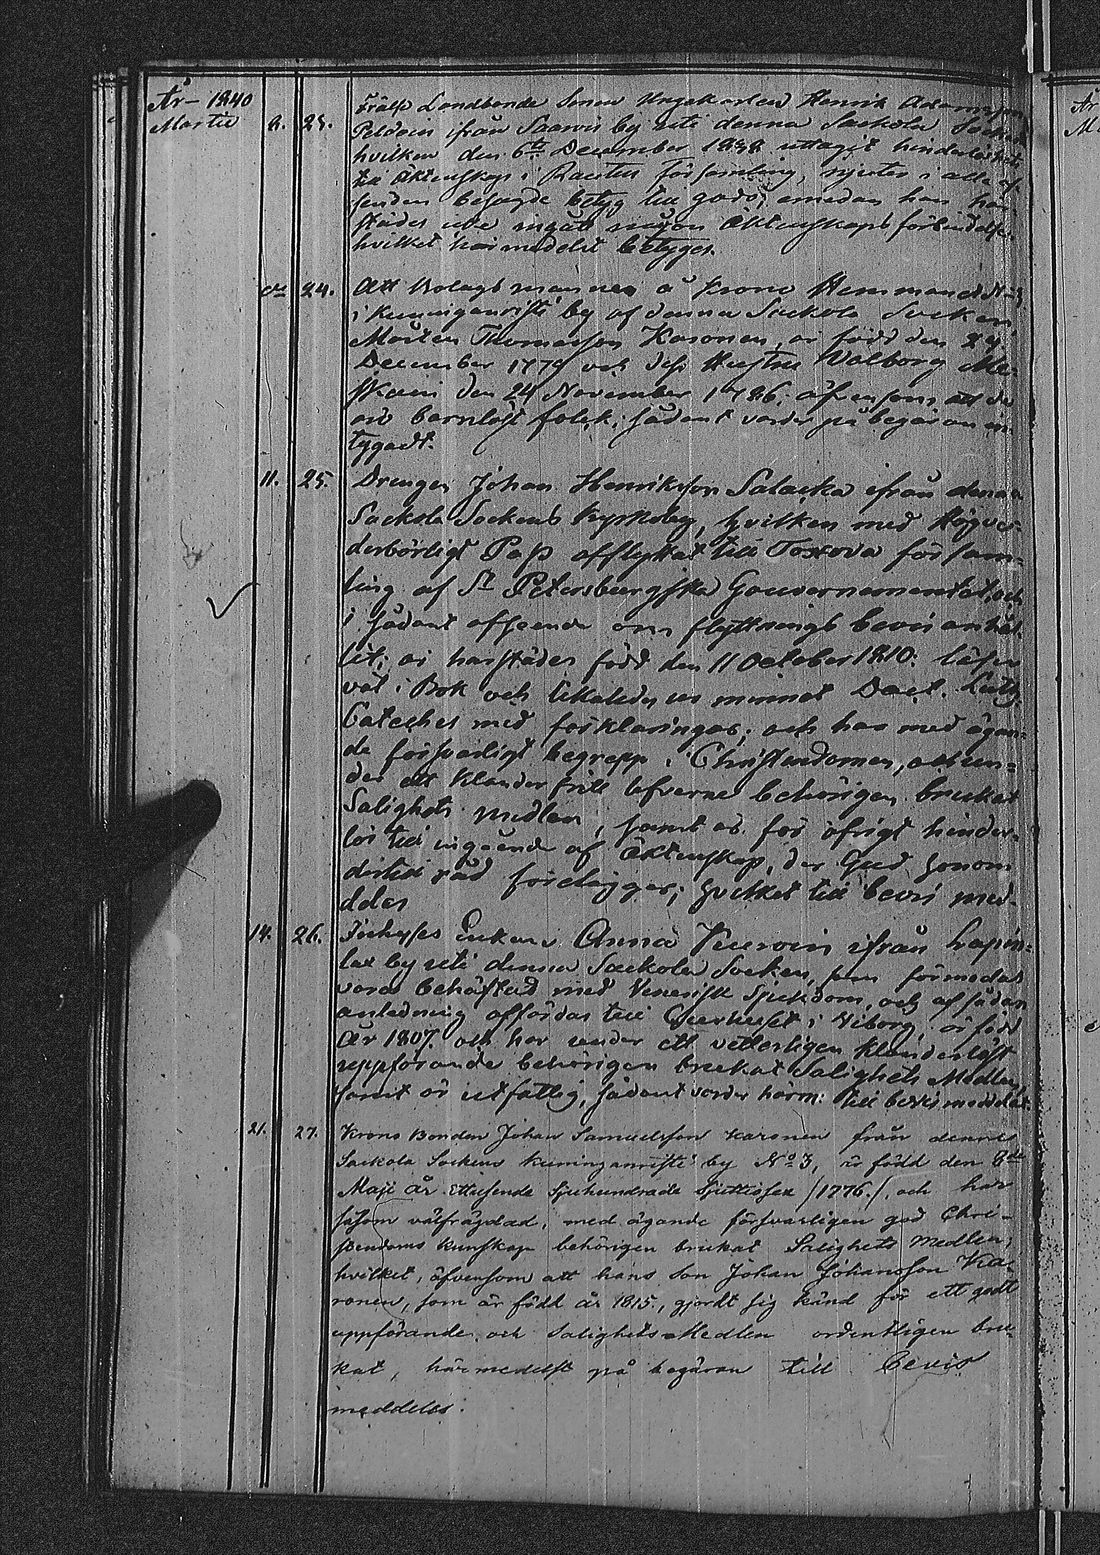 År 1840
Martii 2. 23. Frälse Landbonde Sonen Ungekarlen Henrik Adamsson
Peldoin ifrån Saarois by uti denna Sackola Socken
hvilken den 6te December 1838 uttagit hinderlöshets
till Äktenskap i Rautus församling, njuter i alla af-
seenden besagde betyg till godo, emedan han här-
städes icke ingått någon Äktenskaps förbindelse,
hvilket härmedelst betygas.
24. Att Bolagsmannen å Krono Hemmanet N 3
i Kuninganristi by af denna Sackola Socken
Mårten Thomasson Karonen, är född den 29
December 1779 och dess Hustru Walborg
den 24 November 1786; äfvensom att de
äro barnlöst folk; sådant varder på begäran in-
tygadt.
11. 25. Drengen Johan Henriksson Salacka ifrån denna
Sackola Sockens Kyrkoby, hvilken med Högve-
derbörligt Pass afflyttat till Toxova församl-
ling af St Petersburgska Gouvernementet, och
i sådant afseende om flyttnings bevis anhål-
lit; är härstädes född den 11 October 1810. läser
väl i Bok och likaledes ur minnet Doct. Luth.
Cateches med förklaringar; och har med ägan-
de försvarligt begrepp i Christendomen, allun-
der ett klanderfritt lefverne behörigen brukat
Salighets medlen, samt är för öfrigt hinder-
lös till ingående af Äktenskap, der Gud honom
dertill råd förelägger; hvilket till bevis med-
delas
14. 26. Inhyses Enkan Anna ifrån Lapin-
lax by uti denna Sackola Socken, som förmodas
vara behäftad med Venerisk Sjukdom, och af sådan
anledning affördas till Curhuset i Viborg, är född
år 1807. och har under ett vetterligen klanderlöst
uppförande behörigen brukat Salighets Medlen,
samt är utfattig, sådant varder härm: till bevis meddelat.
21. 27. Krono Bonden Johan Samuelsson Karonen från denna
Sackola Sockens Kuninganristi by No 3, är född den 8de
Maji år Ettusende Sjuhundrade Sjuttiosex /1776./, och har
såsom välfrägdad, med ägande försvarligen god Chri-
stendoms kunskap behörigen brukat Salighets medlen,
hvilket, äfvensom att hans Son Johan Johansson Ka-
ronen, som är född år 1815., gjordt sig känd för ett godt
uppförande och Salighets Medlen ordentligen bru-
kat, härmedelst på begäran till Bevis
meddelas.